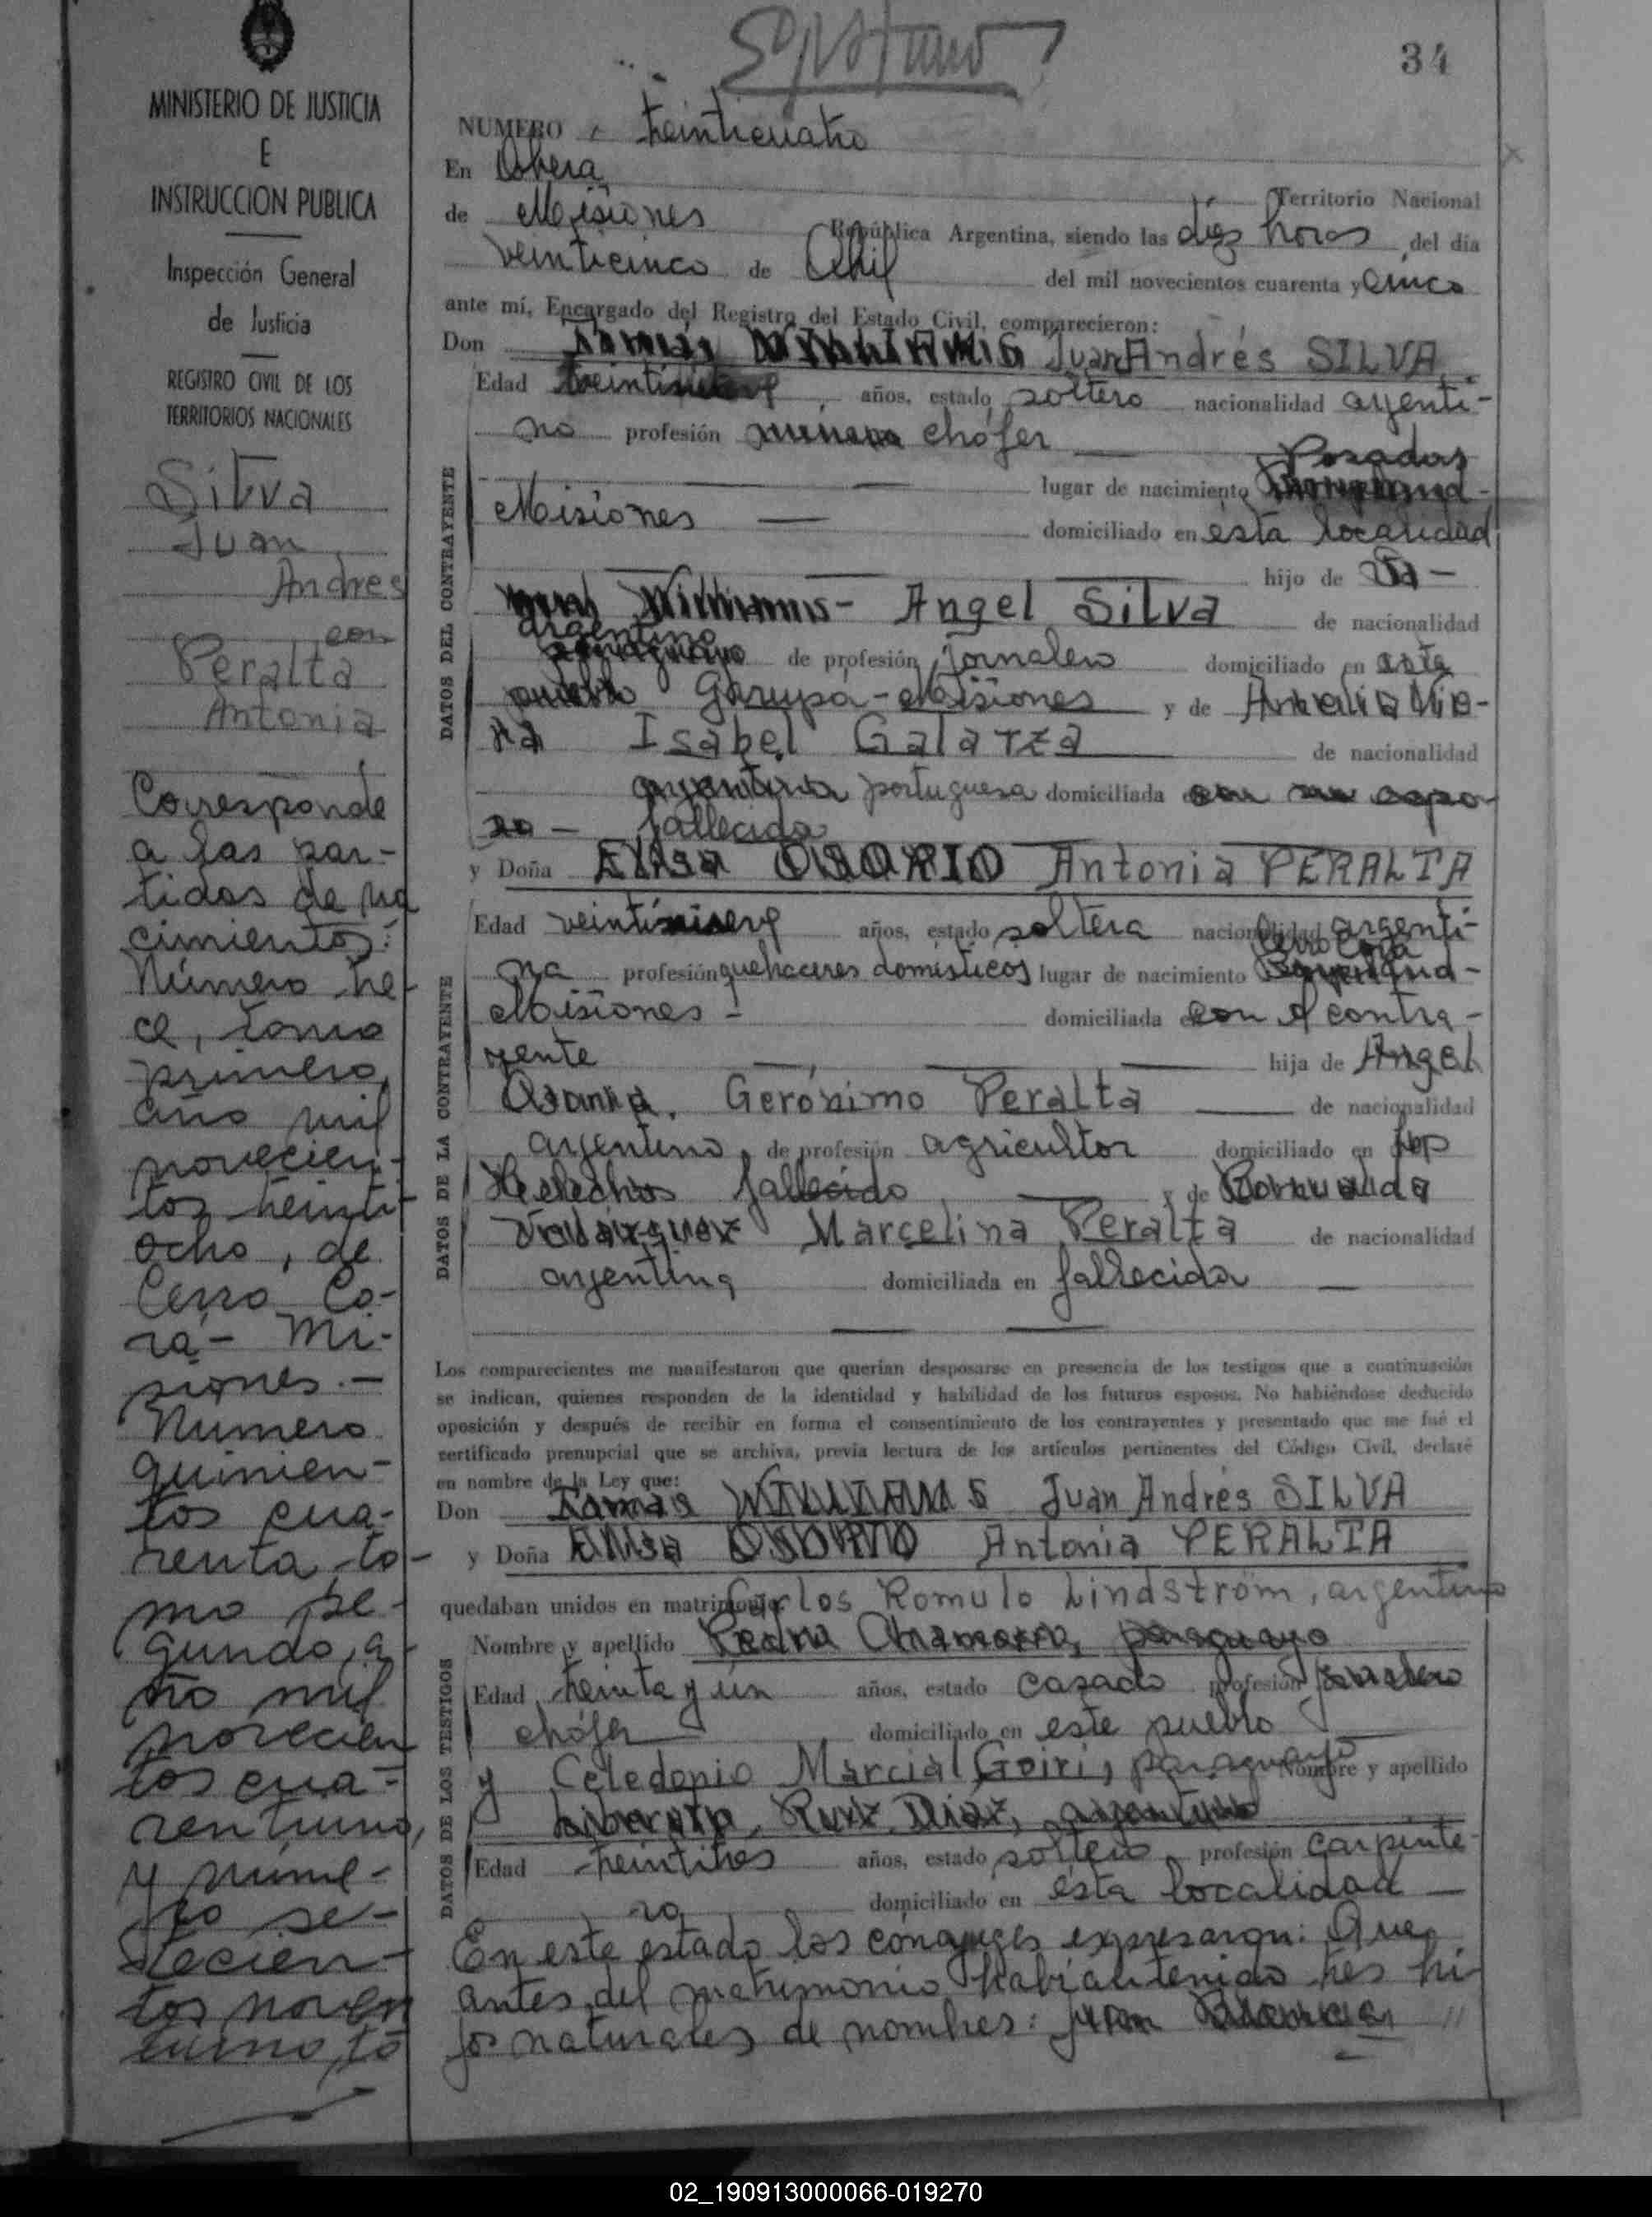 34
MINISTERIO DE JUSTICIA
E
INSTRUCCION PUBLICA
Inspección General
de Justicia
REGISTRO CIVIL DE LOS
TERRITORIOS NACIONALES
Silva
Juan
Andres
con
Peralta
Antonia
Corresponde
a las par-
tidas de na
cimientos:
Número tre-
ce, tomo
primero,
año mil
novecien-
tos treinti-
ocho, de
Cerro Co-
rá - Mi-
siones.-
Número
quinien-
tos cua-
renta, to-
mo se-
gundo, a-
ño mil
novecien
tos cua-
rentiuno,
y núme-
ro se-
tecien-
tos noven
tiuno, to
NUMERO treinticuatro
En Obera
Territorio Nacional
de Misiones República Argentina, siendo las diez horas del día
veinticinco de Abril del mil novecientos cuarenta y cinco
ante mí, Encargado del Registro del Estado Civil, comparecieron:
Don Tomás WILLIAMS Juan Andrés SILVA
Edad años, estado soltero nacionalidad argenti-
no profesión chófer
Posadas
lugar de nacimiento
Misiones domiciliado en ésta localidad
hijo de
Williams - Angel Silva de nacionalidad
argentino
de profesión jornalero domiciliado en este
pueblo Garupá - Misiones y de
Isabel Galarza de nacionalidad
argentina portuguesa domiciliada en con su espo-
so - fallecida
y Doña Elisa OSORIO Antonia PERALTA
Edad años, estado soltera nacionalidad argenti-
Cerro Corá
na profesión quehaceres domésticos lugar de nacimiento
Misiones - domiciliada en con el contra-
yente hija de Angel
Gerónimo Peralta de nacionalidad
argentino de profesión agricultor domiciliado en
fallecido y de
Marcelina Peralta de nacionalidad
argentina domiciliada en fallecida
Los comparecientes me manifestaron que querían desposarse en presencia de los testigos que a continuación
se indican, quienes responden de la identidad y habilidad de los futuros esposos. No habiéndose deducido
oposición y después de recibir en forma el consentimiento de los contrayentes y presentado que me fué el
certificado prenupcial que se archiva, previa lectura de los artículos pertinentes del Código Civil, declaré
en nombre de la Ley que:
Don Tomás WILLIAMS Juan Andrés SILVA
y Doña Elisa OSORIO Antonia PERALTA
quedaban unidos en matrimonio. Carlos Romulo Lindström, argentino
Nombre y apellido paraguayo
Edad treinta y un años, estado casado profesión jornalero
chófer domiciliado en este pueblo
y Celedonio Marcial Goiri, paraguayo Nombre y apellido
Ruiz Diaz, argentino
Edad treintitres años, estado soltero profesión carpinte-
ro domiciliado en ésta localidad
En este estado los cónyuges expresaron: Que
antes del matrimonio habían tenido tres hi-
jos naturales de nombres: Juan
DATOS DEL CONTRAYENTE
DATOS DE LA CONTRAYENTE
DATOS DE LOS TESTIGOS
02_190913000066-019270